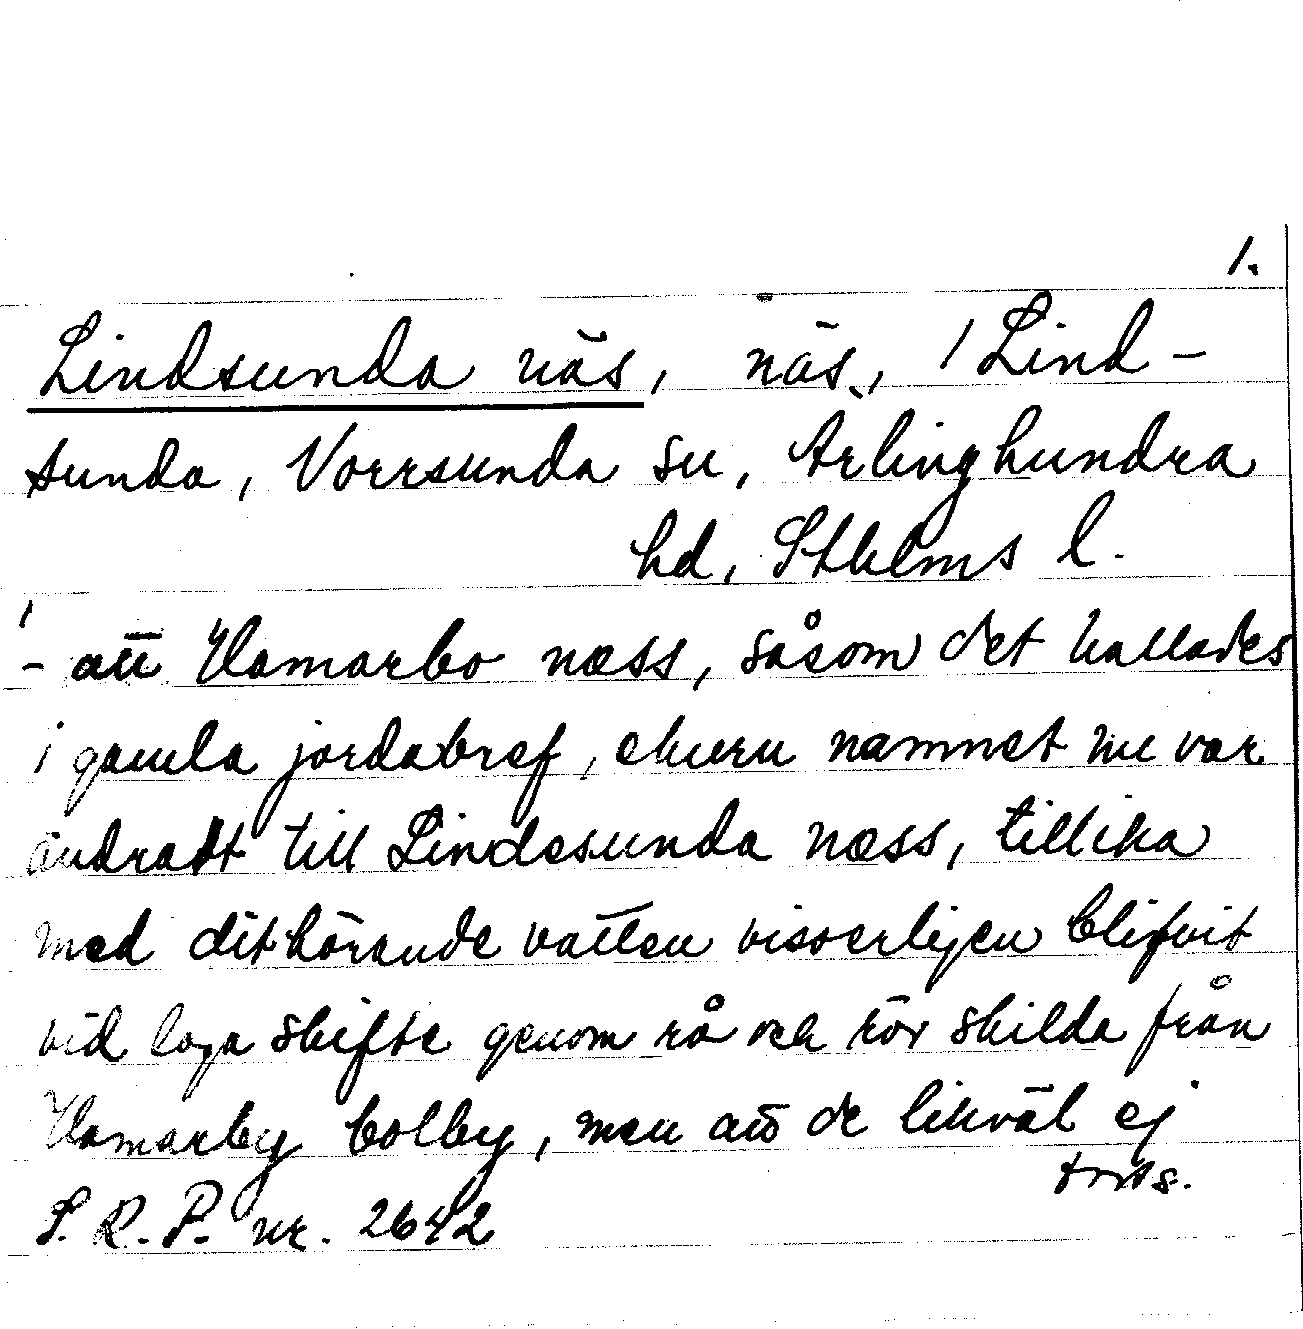 1.
Lindsunda näs, näs, i Lind-
sunda, Norrsunda sn, Ärlinghundra
hd, Sthlms l.
- att Hamarbo næss, såsom det kallades
i gamla jordabref, ehuru namnet nu var
ändradt till Lindesunda næss, tillika
med dithörande vatten visserligen blifvit
vid laga skifte genom rå och rör skilda från
Hamarby bolby, men att de likväl ej
forts.
S. R. P. nr. 2642